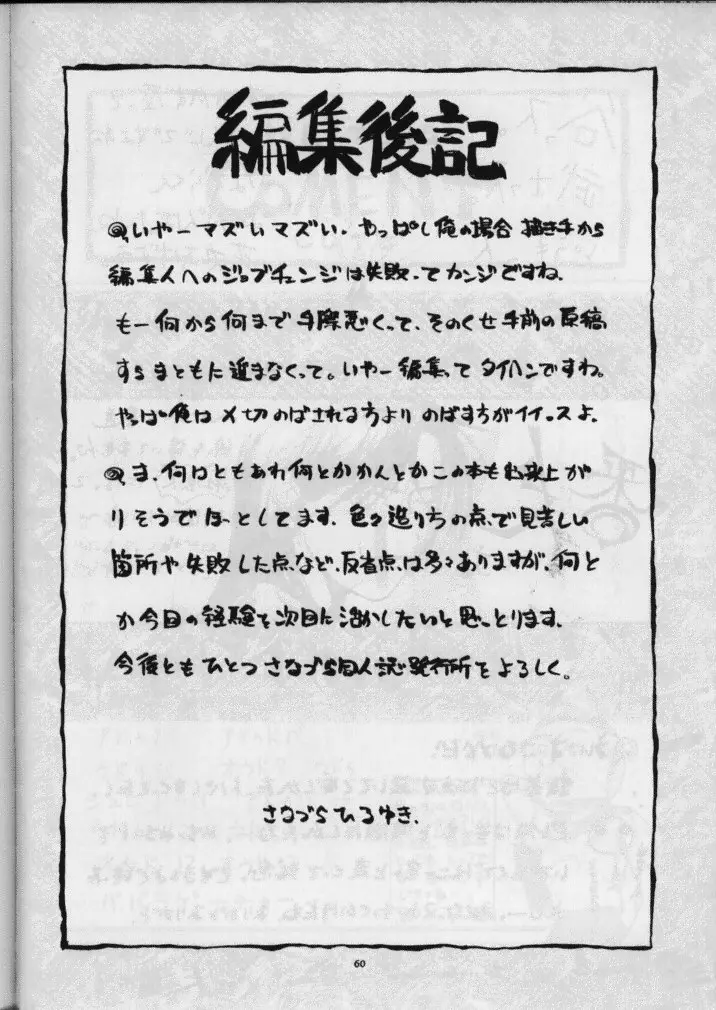 編集後記
いやーマズいマズい。やっぱし俺の場合描き手から
編集人へのジョブチェンジは失敗ってカンジですね。
もー何から何まで手際悪くって、そのくせ手前の原稿
すらまともに進まなくって。いやー編集ってタイヘンですね。
やっぱ俺は〆切のばされる方よりのばす方がイイっスよ。
ま、何はともあれ何とかかんとかこの本も出来上が
りそうでほーっとしてます。色々造りちの点で見苦しい
箇所や失敗した点など、反省点は多々ありますが、何と
か今回の経験を次回に活かしたいと思っとります。
今後ともひとつさなづら同人誌発行所をよろしく。
さなづらひろゆき.
60